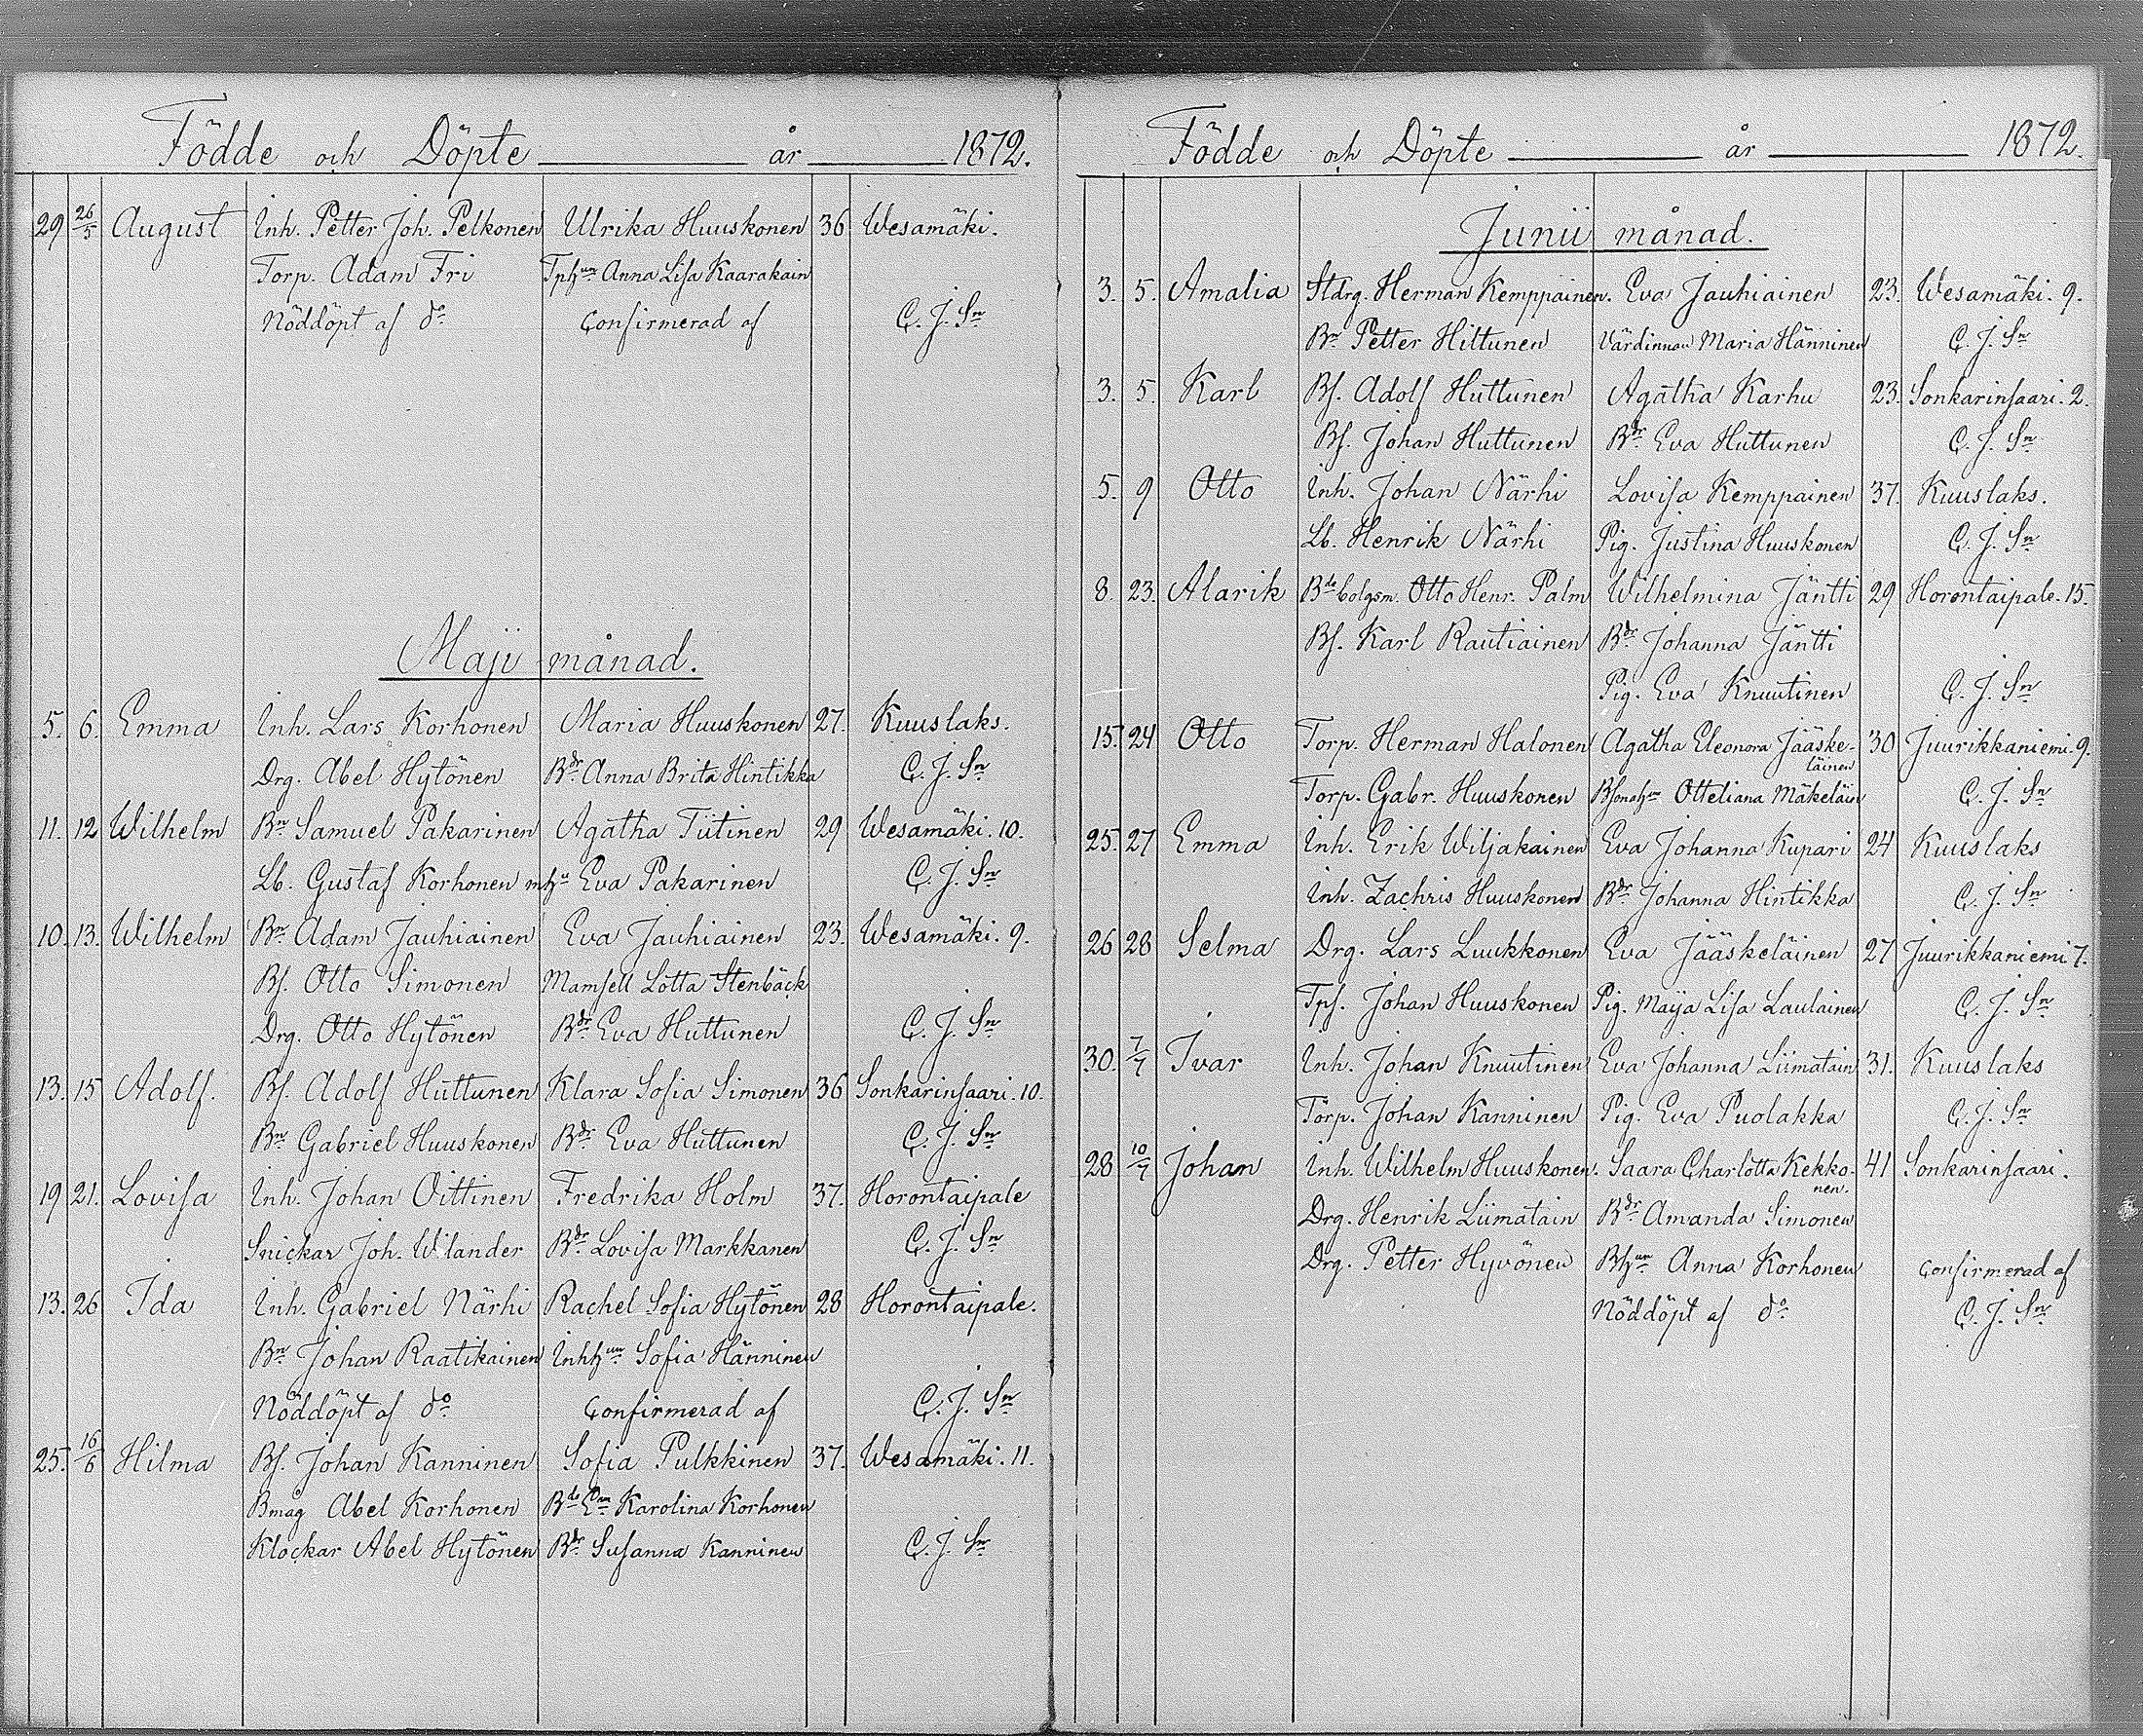 Födde och Döpte år 1872.
29 26/5 August Inh. Petter Joh. Pelkonen Ulrika Huuskonen 36 Wesamäki.
Torp. Adam Fri Tphun Anna Lisa Kaarakain
Nöddöpt af do Confirmerad af C. J. Sn
Maji månad.
5. 6. Emma Inh. Lars Korhonen Maria Huuskonen 27. Kuuslaks.
Drg. Abel Hytönen Bdr Anna Brita Hintikka C. J. Sn
11. 12 Wilhelm Bn Samuel Pakarinen Agatha Tiitinen 29. Wesamäki. 10.
Lb. Gustaf Korhonen mhu Eva Pakarinen C. J. Sn
10. 13. Wilhelm Bn Adam Jauhiainen Eva Jauhiainen 23. Wesamäki. 9.
Bs. Otto Simonen Mamsell Lotta Stenbäck
Drg. Otto Hytönen Bdr Eva Huttunen C. J. Sn
13. 15 Adolf. Bs. Adolf Huttunen Klara Sofia Simonen 36 Sonkarinsaari. 10.
Bn Gabriel Huuskonen Bdr Eva Huttunen C. J. Sn
19 21. Lovisa Inh. Johan Oittinen Fredrika Holm 37. Horontaipale
Snickar Joh. Wilander Bdr Lovisa Markkanen C. J. Sn
13. 26 Ida Inh. Gabriel Närhi Rachel Sofia Hytönen 28 Horontaipale.
Bn Johan Raatikainen Inhhun Sofia Hänninen
Nöddöpt af do Confirmerad af C. J. Sn
25. 16/6 Hilma Bs. Johan Kanninen Sofia Pulkkinen 37. Wesamäki. 11.
Bmåg Abel Korhonen Bde Enn Karolina Korhonen
Klockar Abel Hytönen Bdr Susanna Kanninen C. J. Sn
Födde och Döpte år 1872.
Junii månad.
3. 5. Amalia Stdrg. Herman Kemppainen. Eva Jauhiainen 23. Wesamäki. 9.
Bn Petter Hiltunen Värdinnan Maria Hänninen C. J. Sn
3. 5. Karl Bs. Adolf Huttunen Agatha Karhu 23. Sonkarinsaari. 2.
Bs. Johan Huttunen Bdr Eva Huttunen C. J. Sn
5. 9 Otto Inh. Johan Närhi Lovisa Kemppainen 37. Kuuslaks.
Lb. Henrik Närhi Pig. Justina Huuskonen C. J. Sn
8. 23. Alarik Bde bolgsm. Otto Henr. Palm Wilhelmina Jäntti 29 Horontaipale. 15.
Bs. Karl Rautiainen Bdr Johanna Jäntti
Pig. Eva Knuutinen C. J. Sn
15. 24 Otto Torp. Herman Halonen Agatha Eleonora Jääske- 30 Juurikkaniemi. 9.
läinen
Torp. Gabr. Huuskonen Bsonahun Otteliana Mäkeläin C. J. Sn
25. 27 Emma Inh. Erik Wiljakainen Eva Johanna Kupari 24 Kuuslaks
Inh. Zachris Huuskonen Bdr Johanna Hintikka C. J. Sn
26 28 Selma Drg. Lars Luukkonen Eva Jääskeläinen 27 Juurikkaniemi 7.
Tps. Johan Huuskonen Pig. Maija Lisa Laulainen C. J. Sn
30. 7/7 Ivar Inh. Johan Knuutinen Eva Johanna Liimatain 31. Kuuslaks
Torp. Johan Kanninen Pig. Eva Puolakka C. J. Sn
28 10/7 Johan Inh. Wilhelm Huuskonen. Saara Charlotta Kekko- 41 Sonkarinsaari.
nen.
Drg. Henrik Liimatain Bdr Amanda Simonen
Drg. Petter Hyvönen Bhun Anna Korhonen Confirmerad af
Nöddöpt af do C. J. Sn